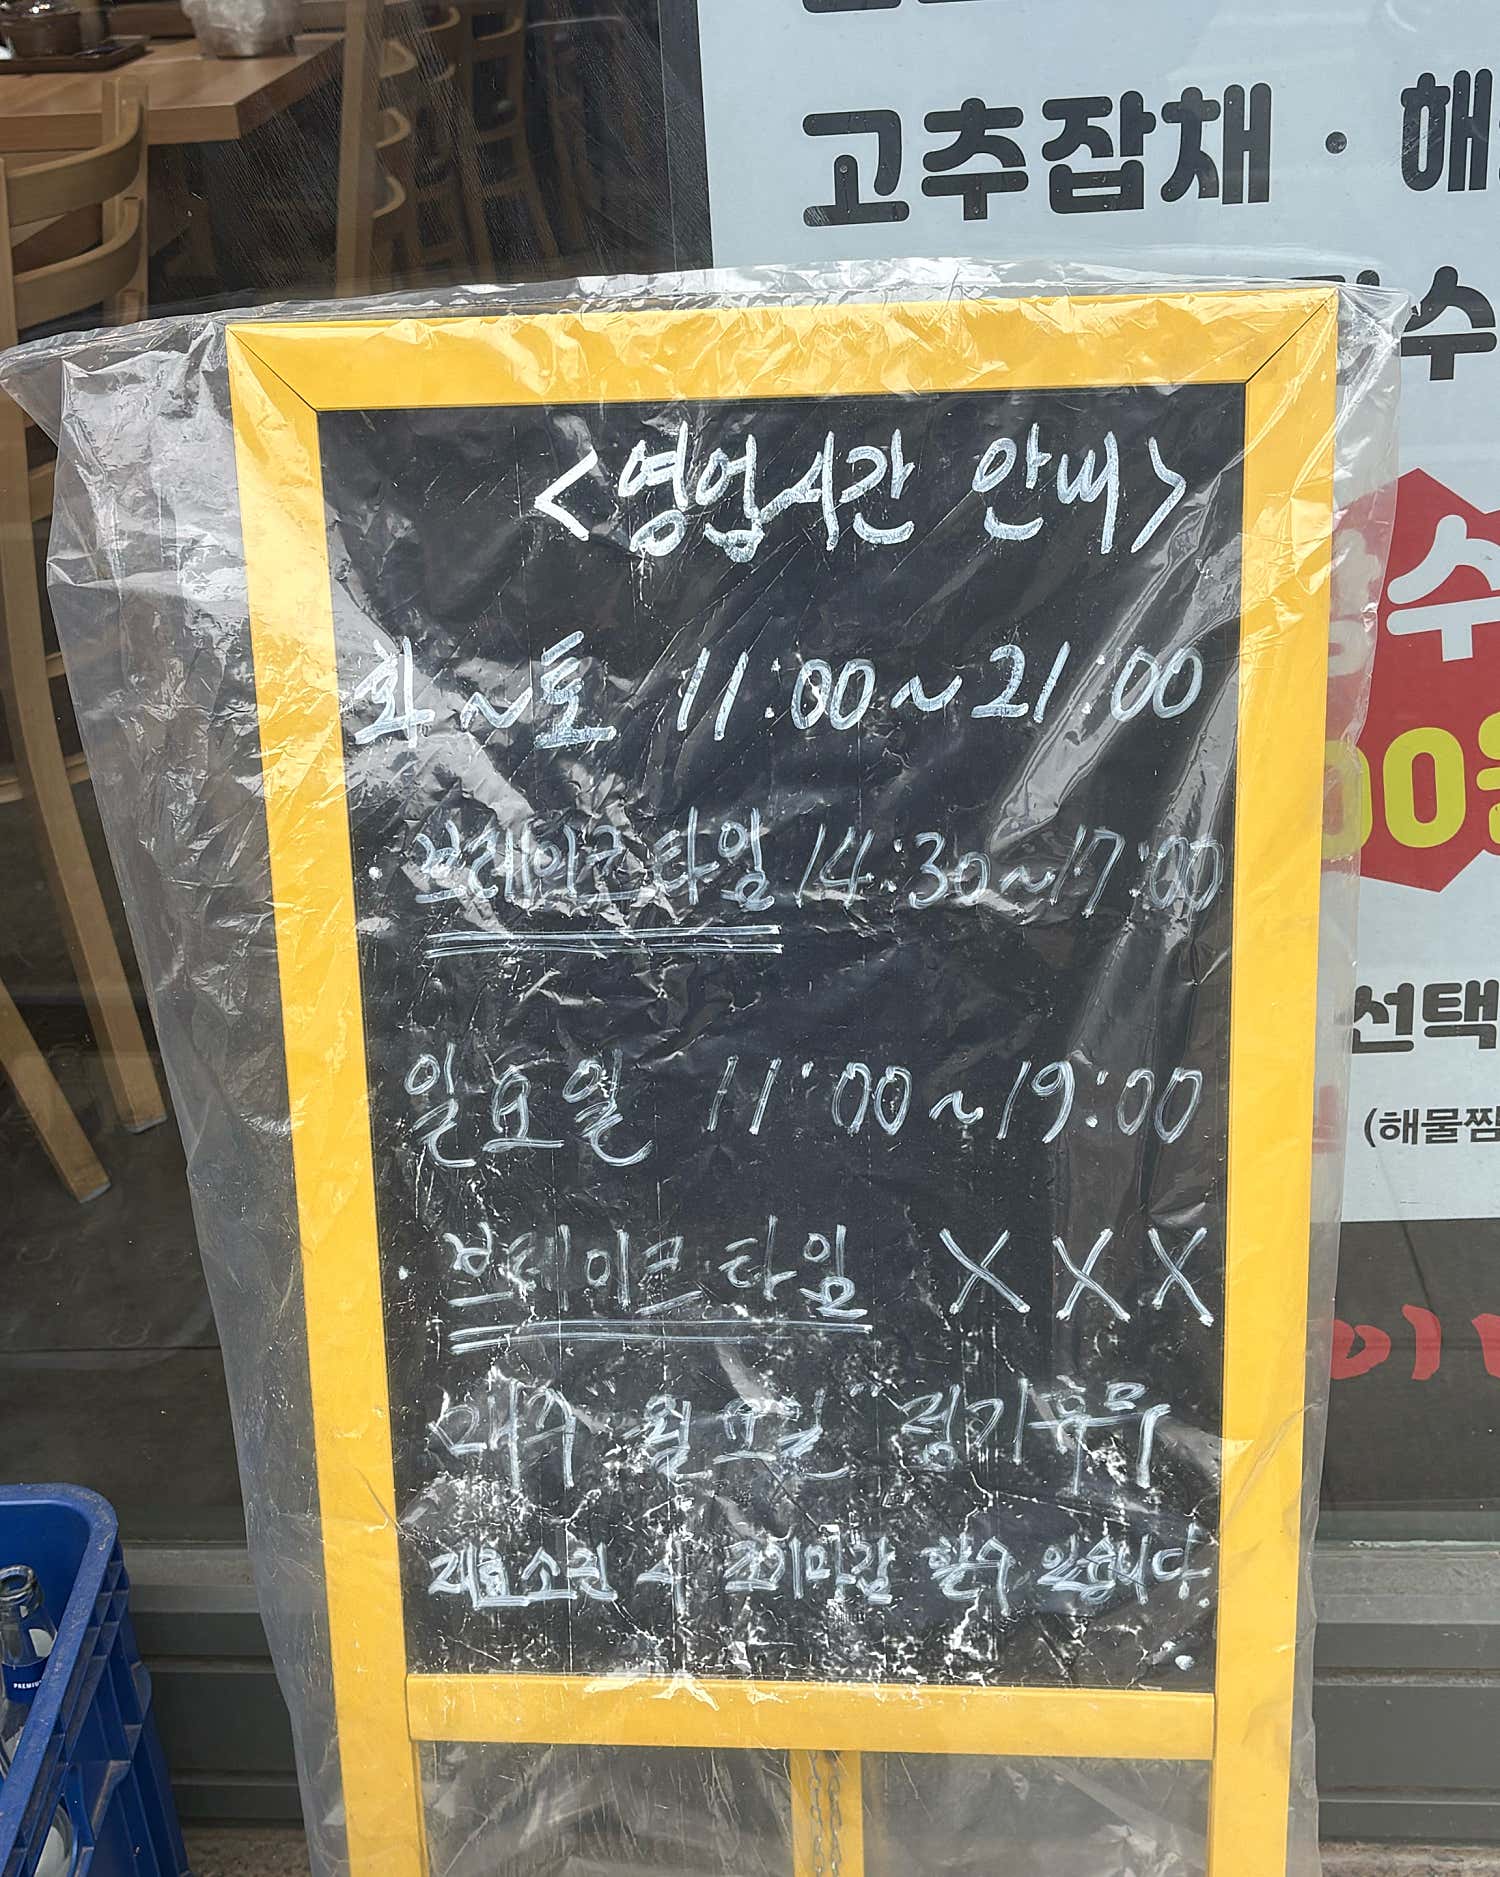 고추잡채 · 해
수
수
00원
선택
(해물찜
<영업시간 안내>
화 ~ 토 11:00 ~ 21:00
· 브레이크타임 14:30~17:00
일요일 11:00 ~ 19:00
· 브레이크 타임 X X X
매주 월요일 "정기휴무
재료소진 시 조기마감 할수 있습니다.
PREMIUM